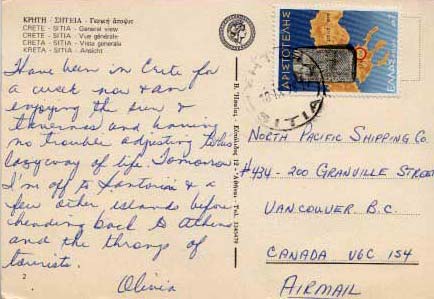 ΚΡΗΤΗ - ΣΗΤΕΙΑ - Γενική άποψις
CRETE - SITIA - General view
CRETE - SITIA - Vue générale
CRETA - SITIA - Vista generale
KRETA - SITIA - Ansicht
Have been in Crete for
a week now & am
enjoying the sun &
tavernas and having
no trouble adjusting to this
lazy way of life. Tomorrow
I'm off to Santorini & a
few other islands before
heading back to Athens
and the throngs of
tourists.
Olivia
2
ΑΡΙΣΤΟΤΕΛΗΣ
ΕΛΛΑΣ
SITIA
NORTH PACIFIC SHIPPING CO.
#434 - 200 GRANVILLE STREET
VANCOUVER B.C.
CANADA V6C 1S4
AIRMAIL